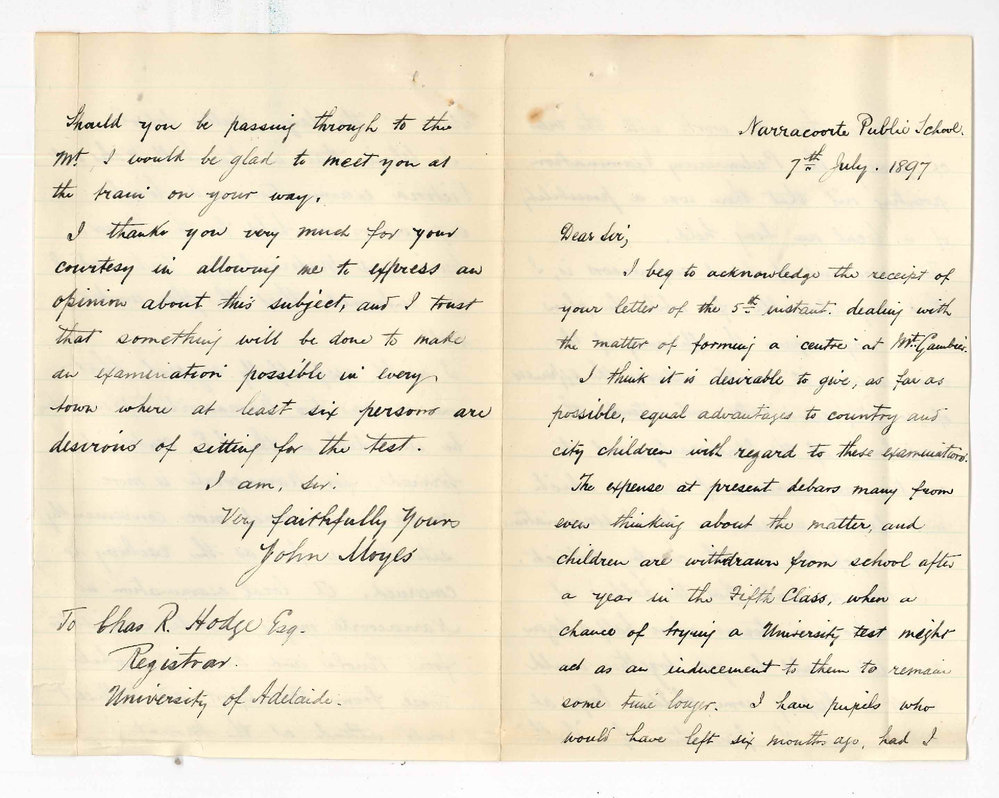 Narracoorte Public School.
7th July. 1897
Dear Sir,
I beg to acknowledge the receipt of
your letter of the 5th instant. dealing with
the matter of forming a "centre" at Mt. Gambier.
I think it is desirable to give, as far as
possible, equal advantages to country and
city children with regard to these examinations.
The expense at present debars many from
even thinking about the matter, and
children are withdrawn from school after
a year in the Fifth Class, when a
chance of trying a University test might
act as an inducement to them to remain
some time longer. I have pupils who
would have left six months ago, had I
Should you be passing through to the
Mt. I would be glad to meet you at
the train on your way.
I thank you very much for your
courtesy in allowing me to express an
opinion about this subject, and I trust
that something will be done to make
an examination possible in every
town where at least six persons are
desirous of sitting for the test.
I am, sir.
Very faithfully Yours
John Moyes
To Chas R. Hodge Esq.
Registrar.
University of Adelaide.